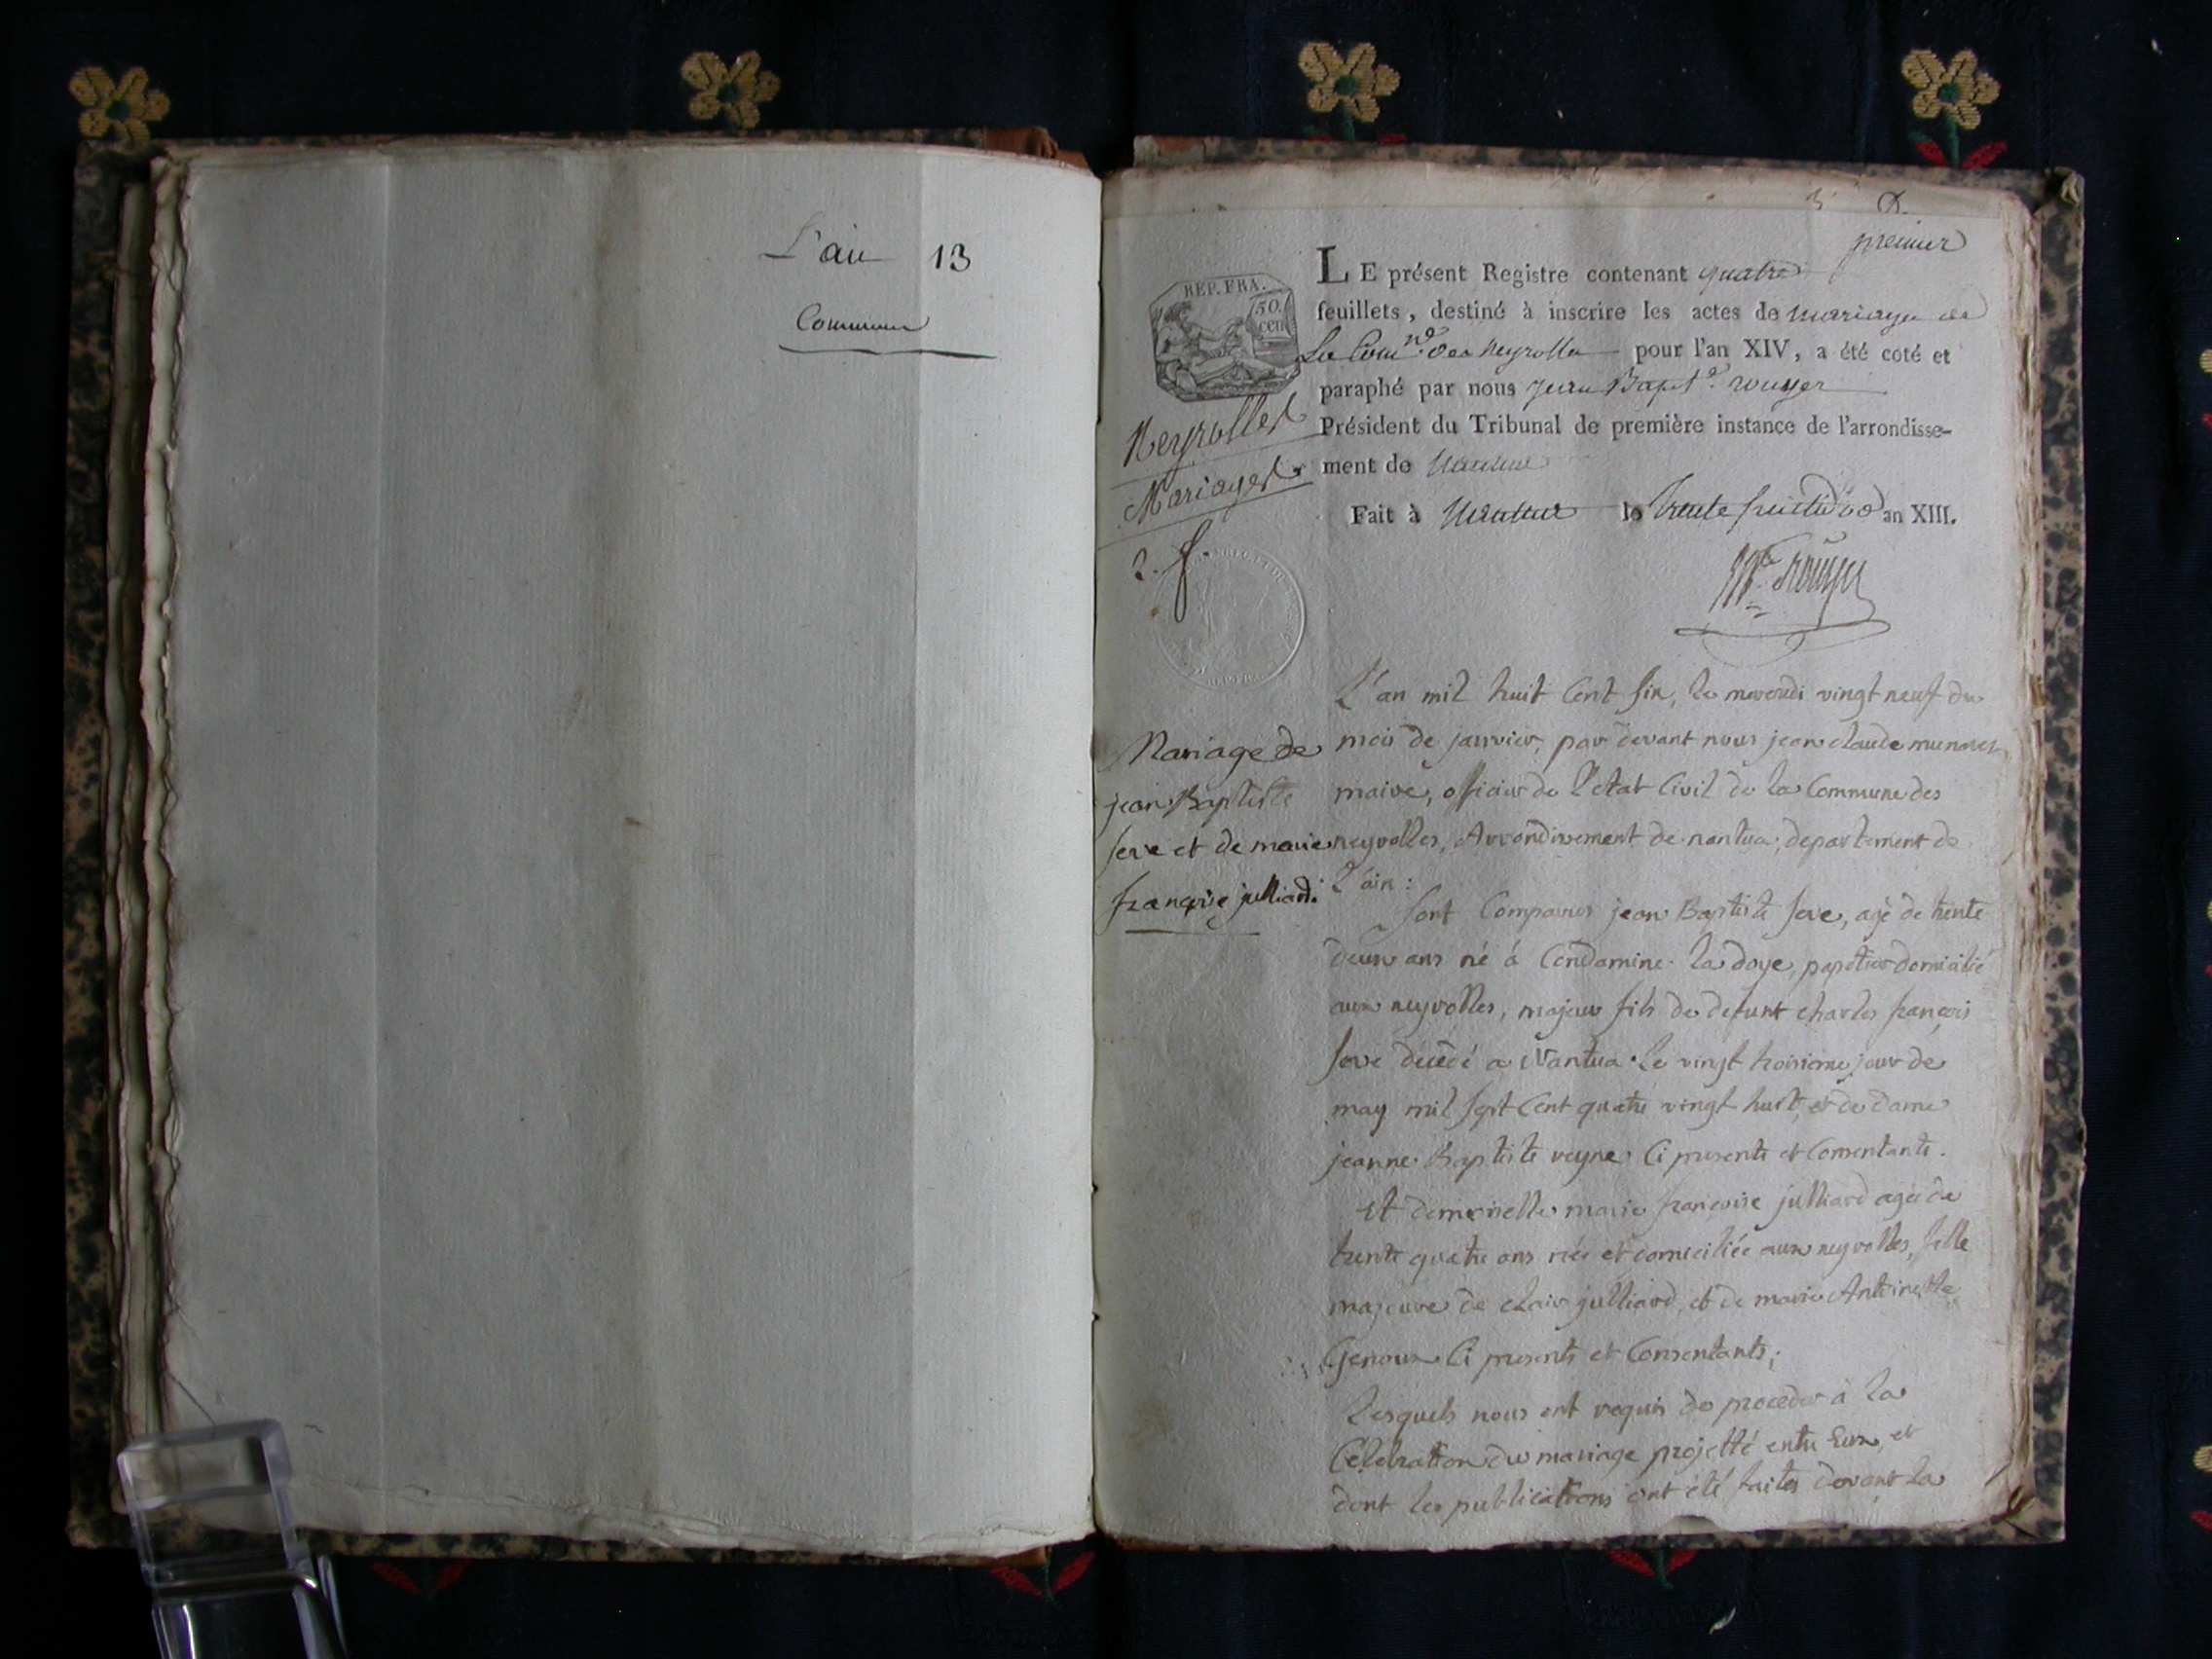 L'an 13
Commune
premier
REP. FRA.
50.
cen
LE présent Registre contenant quatre
feuillets, destiné à inscrire les actes de mariage de
La Comne des neyrolles pour l'an XIV, a été coté et
paraphé par nous jean Bapte rouyer
Président du Tribunal de première instance de l'arrondisse-
ment de Nantua
Fait à Nantua le trente fructidor an XIII.
Neyrolles
Mariages
2. f.
L'an mil huit Cent six, le mercredi vingt neuf du
mois de janvier, par devant nous jean claude
maire, officier de l'etat Civil de la Commune des
neyrolles, Arrondissement de nantua, departement de
l'ain :
Mariage de
jean Baptiste
Seve et de marie
françoise julliard.
Sont Comparus jean Baptiste Seve, agé de trente
deux ans né à Condamine la doye, papetier domicilié
aux neyrolles, majeur fils de defunt charles françois
Seve décédé a Nantua le vingt troisieme jour de
may mil sept Cent quatre vingt huit, et de dame
jeanne Baptiste veyne Ci presente et Consentante.
Et demoiselle marie françoise julliard agée de
trente quatre ans née et domiciliée aux neyrolles, fille
majeure de clair julliard, et de marie Antoinette
Genoux Ci presents et Consentants;
Lesquels nous ont requis de proceder à la
Célébration du mariage projetté entre Eux, et
dont les publications ont été faites devant la